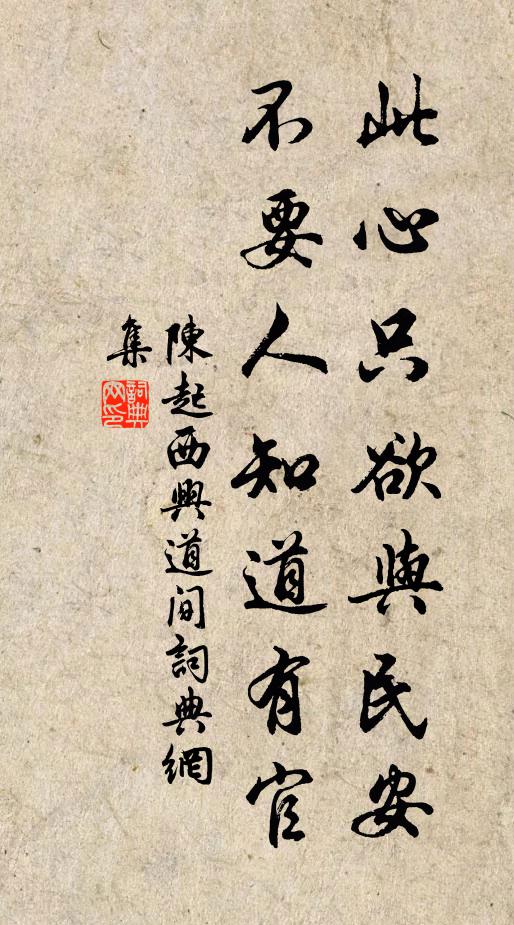 此心只欲與民安
不要人知道有官
陳起西興道間詞典網
集
詞典網印